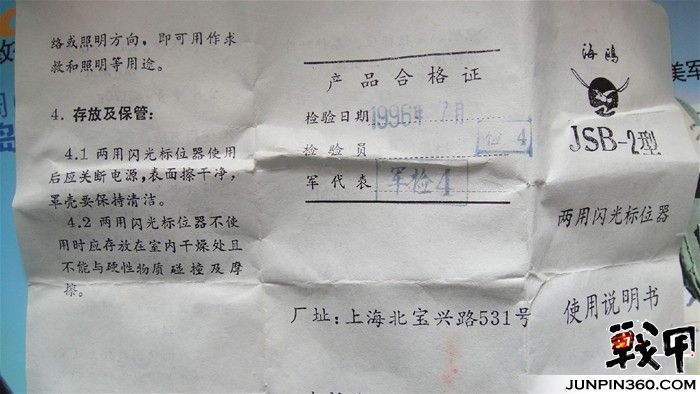 络或照明方向，即可用作求
救和照明等用途。
4. 存放及保管：
4.1 两用闪光标位器使用
后应关断电源，表面擦干净，
罩壳要保持清洁。
4.2 两用闪光标位器不使
用时应存放在室内干燥处且
不能与硬性物质碰撞及摩
擦。
产品合格证
检验日期 1996年 7月
检验员 检 4
军代表 军检4
厂址：上海北宝兴路531号
海鸥
JSB-2型
两用闪光标位器
使用说明书
美军
战甲
JUNPIN360.COM